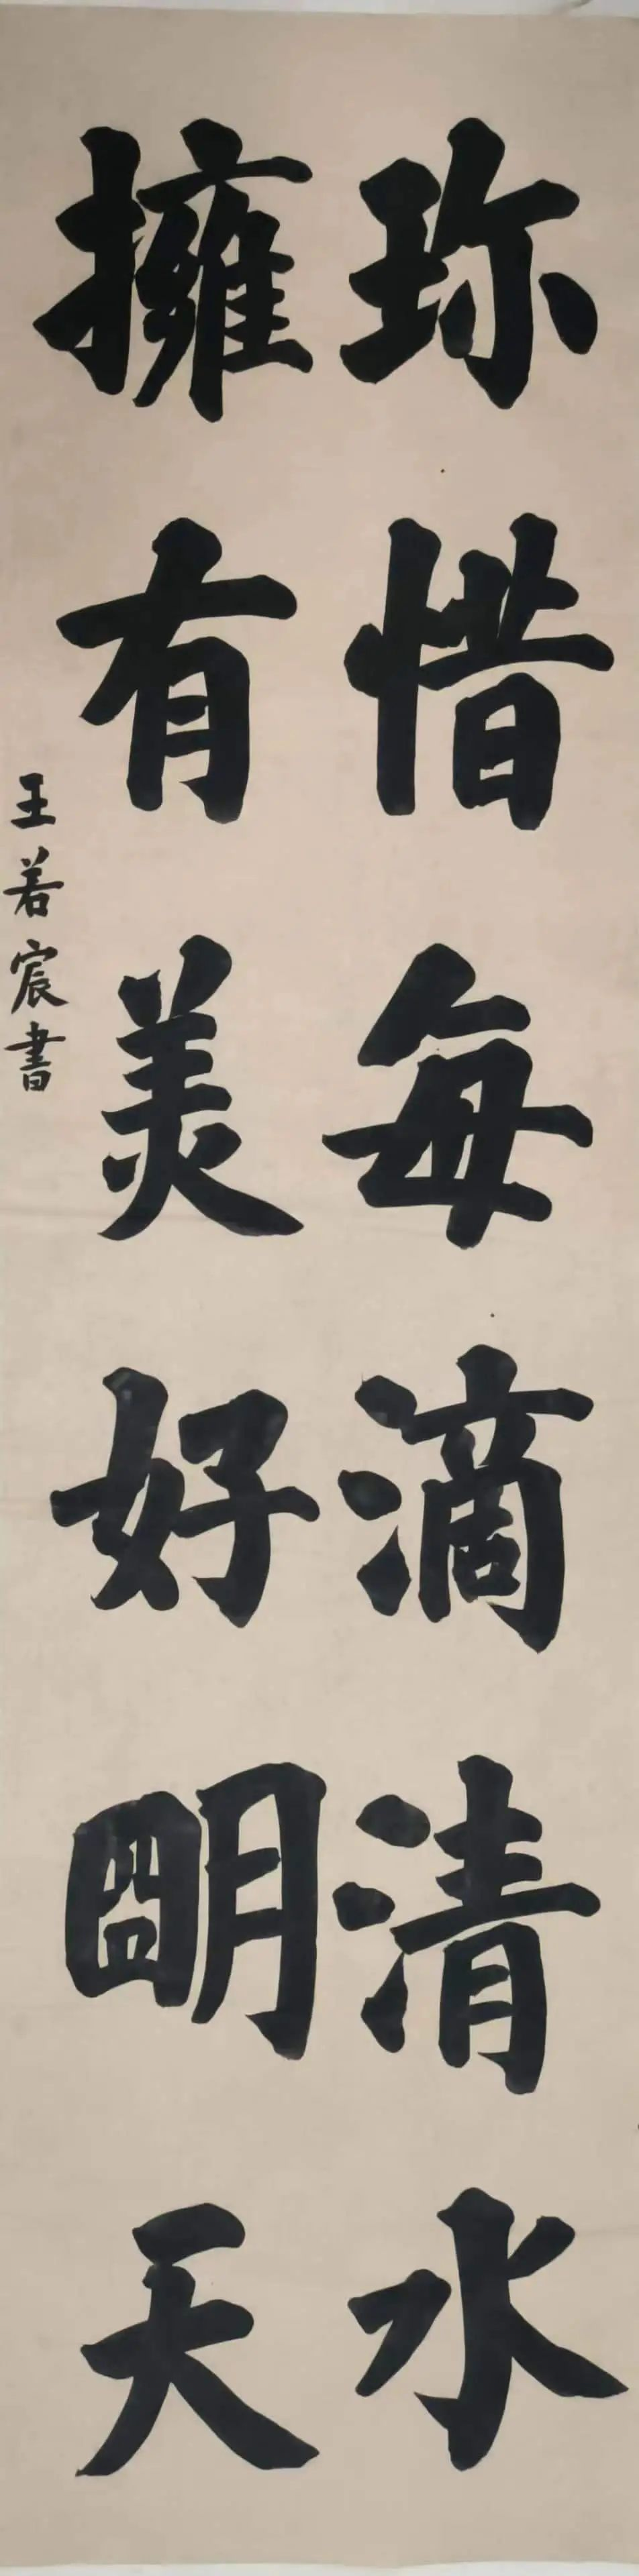 珎惜每滴清水
擁有美好朙天
王若宸書